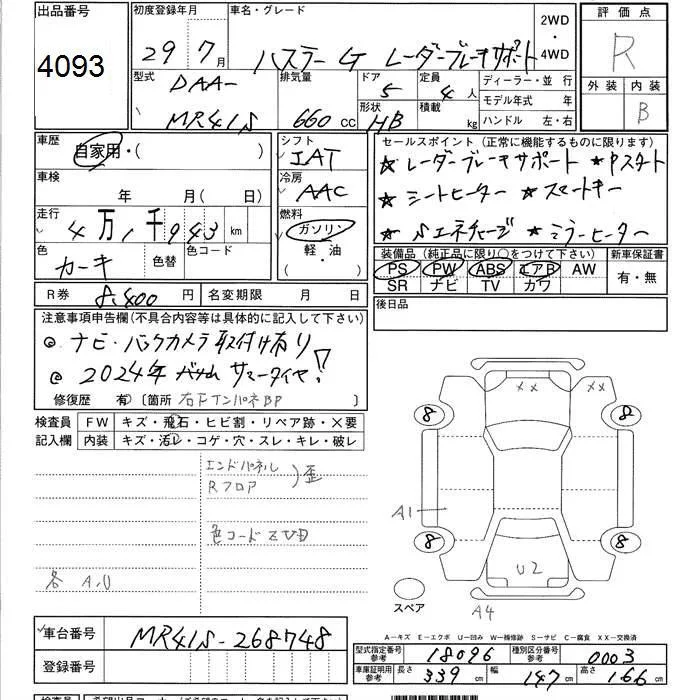 出品番号
4093
初度登録年月
29年7月
車名・グレード
ハスラー G レーダーブレーキサポート
2WD
・
4WD
評価点
R
外装 内装
B
型式
DAA-
MR41S
排気量
660 cc
ドア
5
形状
HB
定員
4人
積載
kg
ディーラー・並行
モデル年式 年
ハンドル 左・右
車歴
自家用・( )
車検
年 月( 日)
走行
4万1千943 km
色
カーキ
色替
色コード
R券 8,400 円
名変期限 月 日
シフト
IAT
冷房
AAC
燃料
ガソリン
軽・油
( )
セールスポイント(正常に機能するものに限ります)
★レーダーブレーキサポート ★Pスタート
★シートヒーター ★スマートキー
★Sエネチャージ ★ミラーヒーター
装備品(純正品に限り○をつけて下さい)
PS PW ABS エアB AW
SR ナビ TV カワ
新車保証書
有・無
後日品
注意事項申告欄(不具合内容等は具体的に記入して下さい)
◎ナビ・バックカメラ取付け有り
◎2024年 サマータイヤ!
修復歴 有 〔箇所 右FインパネBP 〕
検査員
記入欄
FW キズ・飛石・ヒビ割・リペア跡・X要
内装 キズ・汚レ・コゲ・穴・スレ・キレ・破レ
エンドパネル
Rフロア
歪
色コード ZVD
各A,U
XX
XX
8
8
A1
8
8
U2
A4
スペア
A-キズ E-エクボ U-凹み W-補修跡 S-サビ C-腐食 XX-交換済
車台番号
MR41S-268748
登録番号
型式指定番号
参考
18096
種別区分番号
参考
0003
車庫証明用
参考
長さ 339 cm
幅 147 cm
高さ 166 cm
検査員